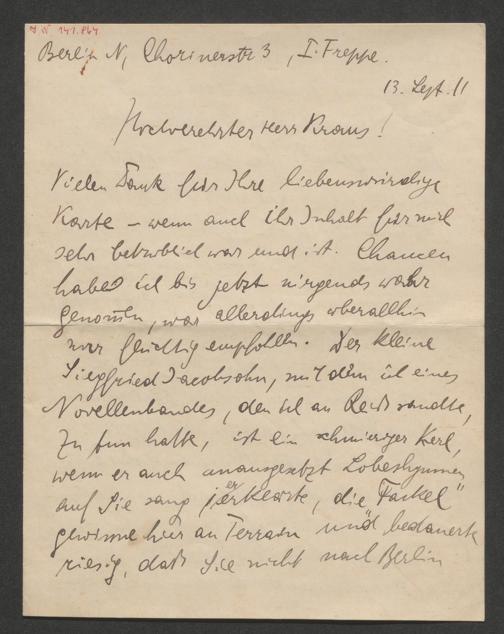 IN 141.864
Berlin N, Chorinerstr 3, I. Treppe.
13. Sept. 11
Hochverehrter Herr Kraus!
Vielen Dank für Ihre liebenswürdige
Karte – wenn auch ihr Inhalt für mich
sehr betrüblich war und ist. Chancen
habe ich bis jetzt nirgends wahr
genommen, war allerdings überallhin
nur flüchtig empfohlen. Der kleine
Siegfried Jacobsohn, mit dem ich eines
Novellenbandes, den ich an Reiss sandte,
zu tun hatte, ist ein schmieriger Kerl,
wenn er auch unausgesetzt Lobeshymnen
auf Sie sang, er erklärte, die „Fackel"
gewinne hier an Terrain und bedauerte
riesig, daß Sie nicht nach Berlin